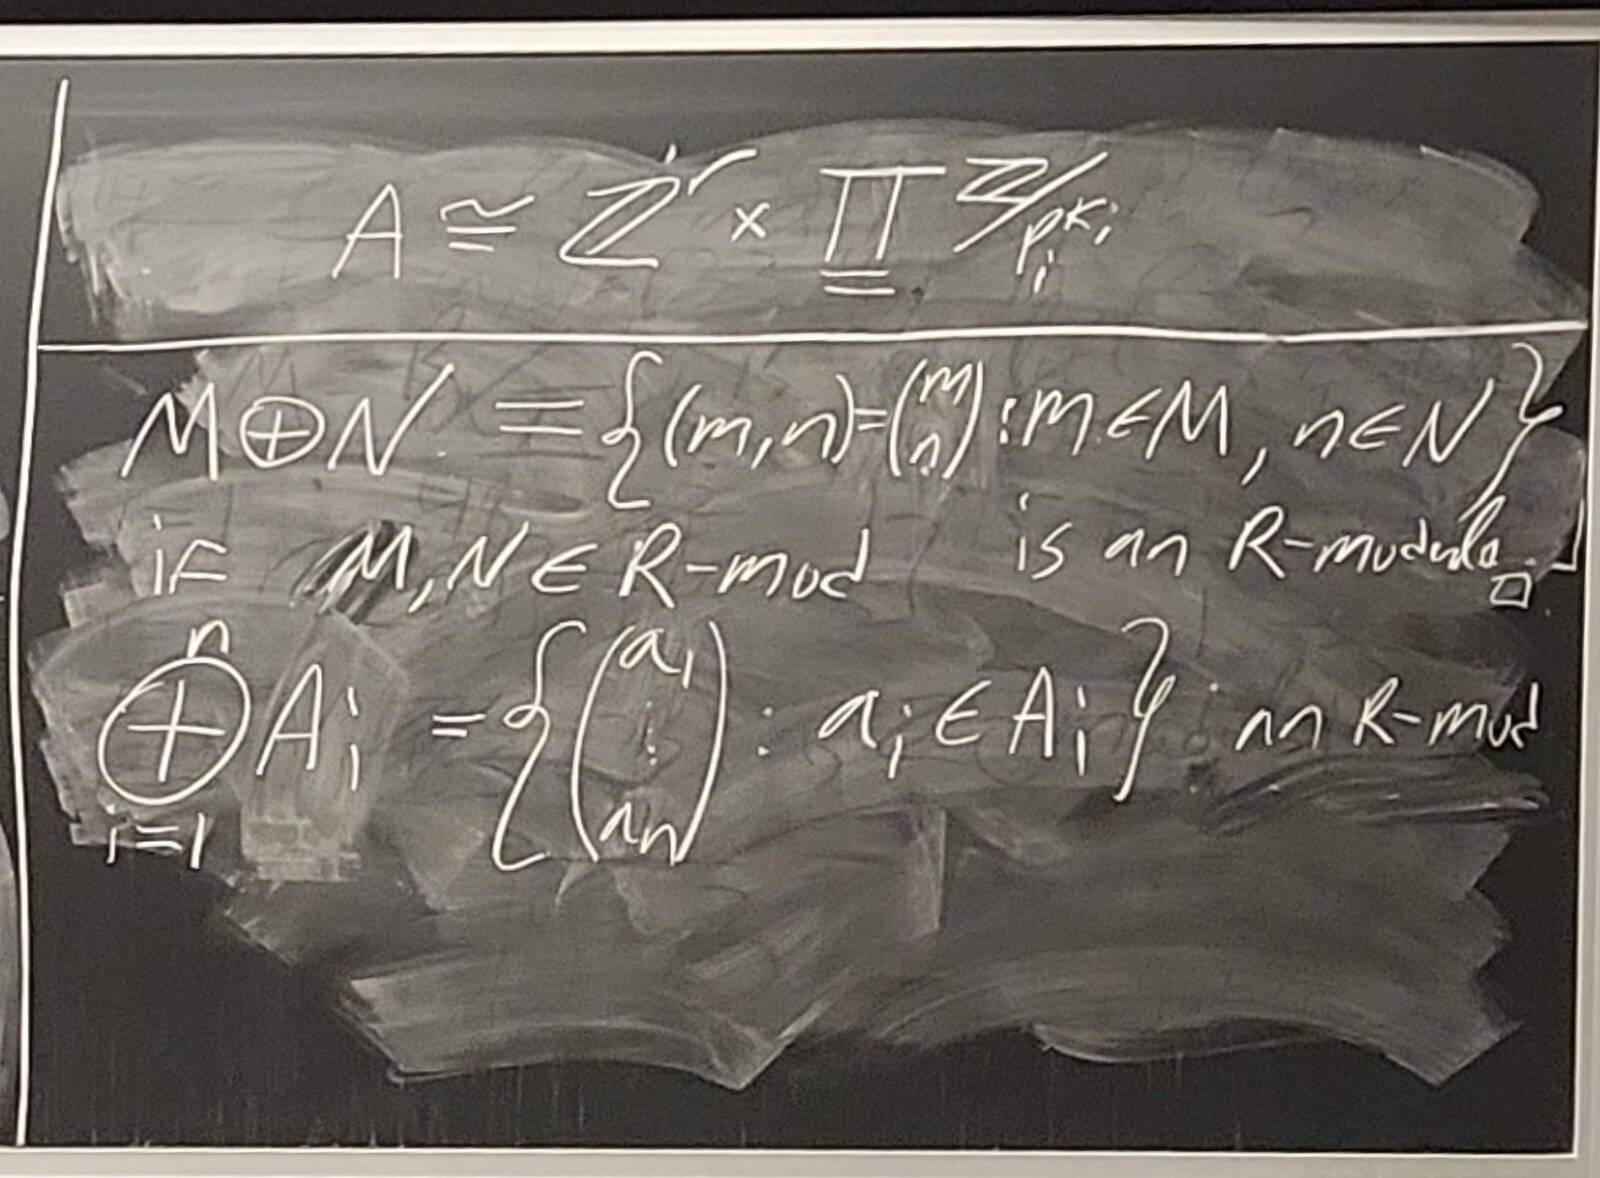 A ≅ ℤ^r × ∏ ℤ/p_i^{k_i}
M ⊕ N ≡ {(m, n) = (m n) : m ∈ M, n ∈ N}
if M, N ∈ R-mod is an R-module □
n
⊕ A_i = {(a_1 ⋮ a_n) : a_i ∈ A_i} an R-mod
i=1